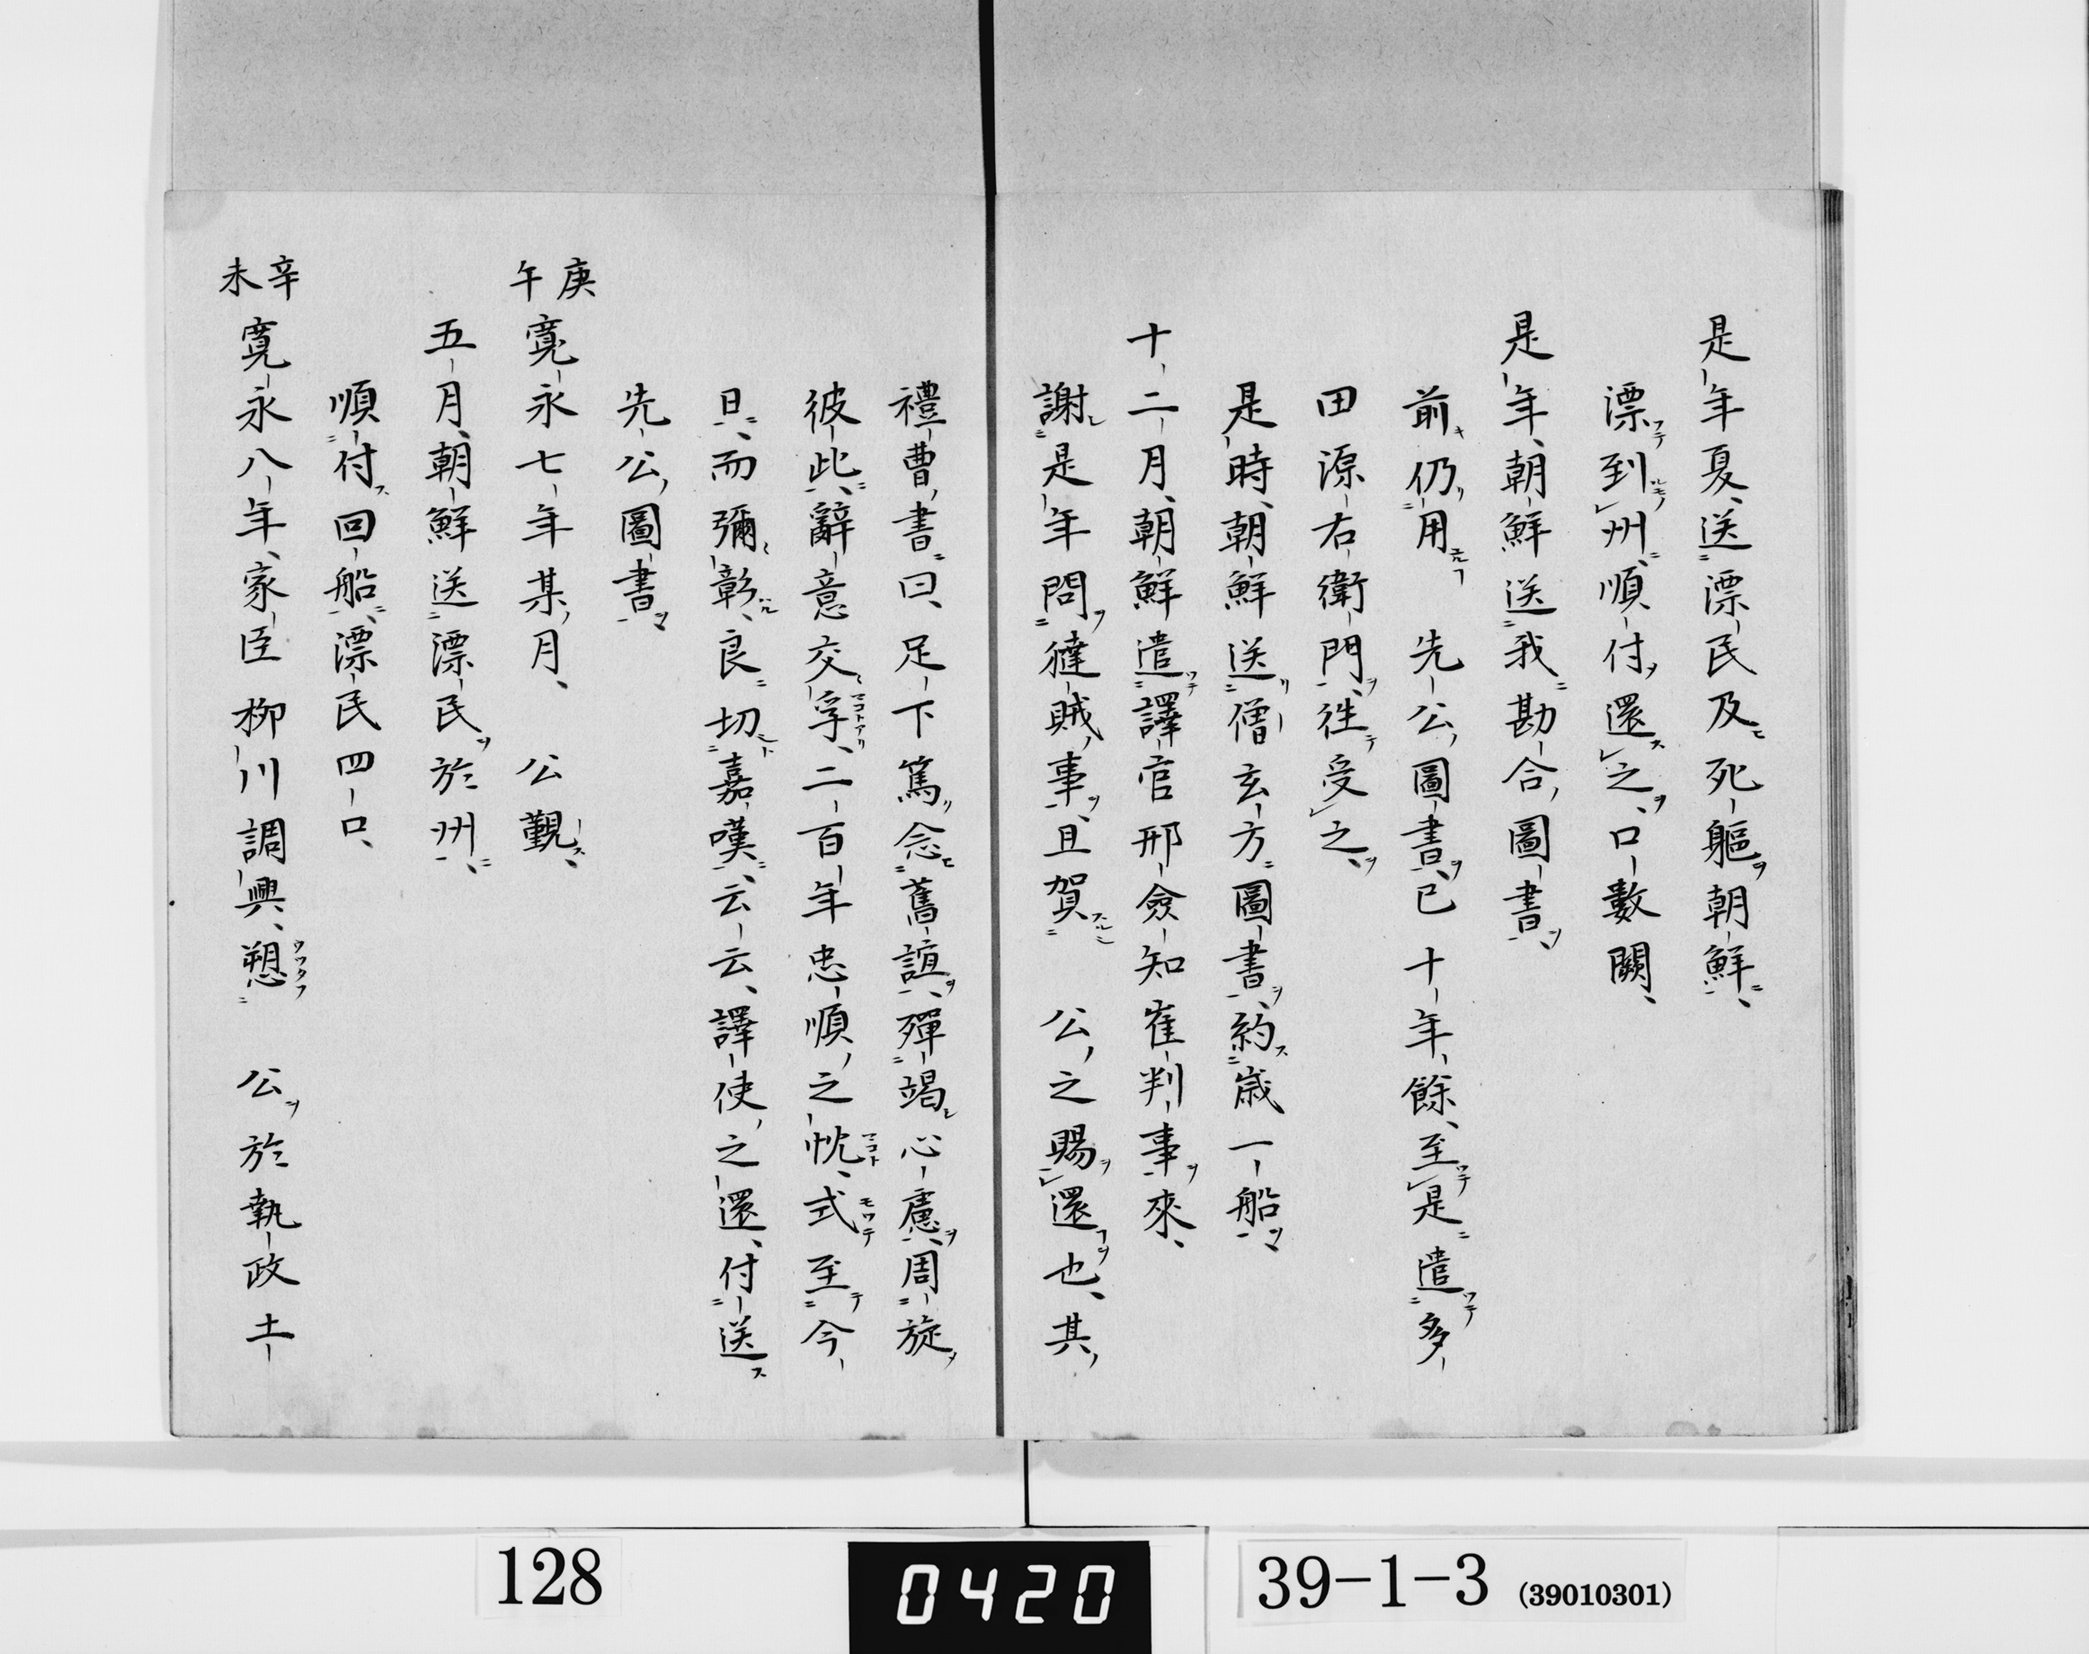 是年夏、送漂民及死軀朝鮮、
漂到州、順付還之、口數闕、
是年、朝鮮送我勘合圖書、
前仍用 先公圖書、已十年餘、至是遣多
田源右衛門、往受之、
是時、朝鮮送僧玄方圖書、約歳一船
十二月、朝鮮遣譯官邢僉知崔判事來、
謝是年問㺚賊事、且賀 公之賜還也、其
禮曹書曰、足下篤念舊誼、殫竭心慮、周旋
彼此、辭意交孚、二百年忠順之忱、式至今
日、而彌彰、良切嘉嘆、云云、譯使之還、付送
先公圖書
庚午 寛永七年某月、 公覲、
五月、朝鮮送漂民於州、
順付回船、漂民四口、
辛未 寛永八年、家臣柳川調興、愬 公於執政土
128
0420
39-1-3 (39010301)